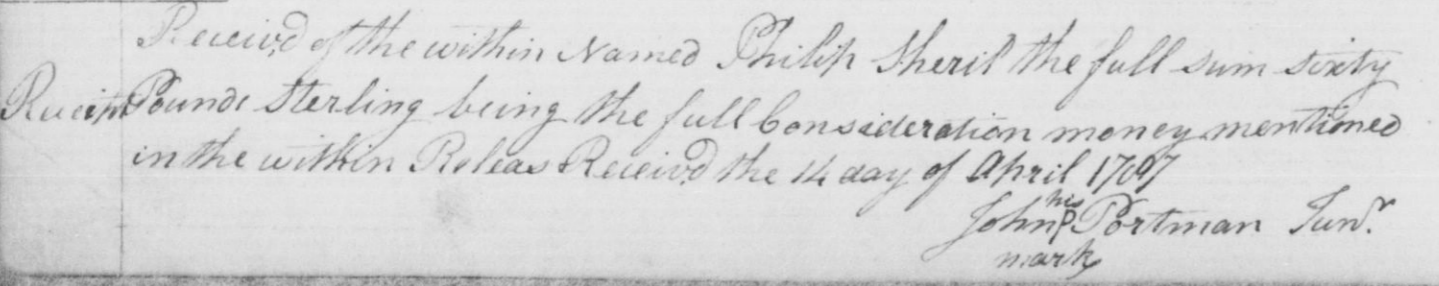 Receiv'd of the within Named Philip Sheril the full sum sixty
Receipt Pounds Sterling being the full Consideration money mentioned
in the within Releas Receiv'd the 14 day of April 1787
his
John P Portman Junr.
mark